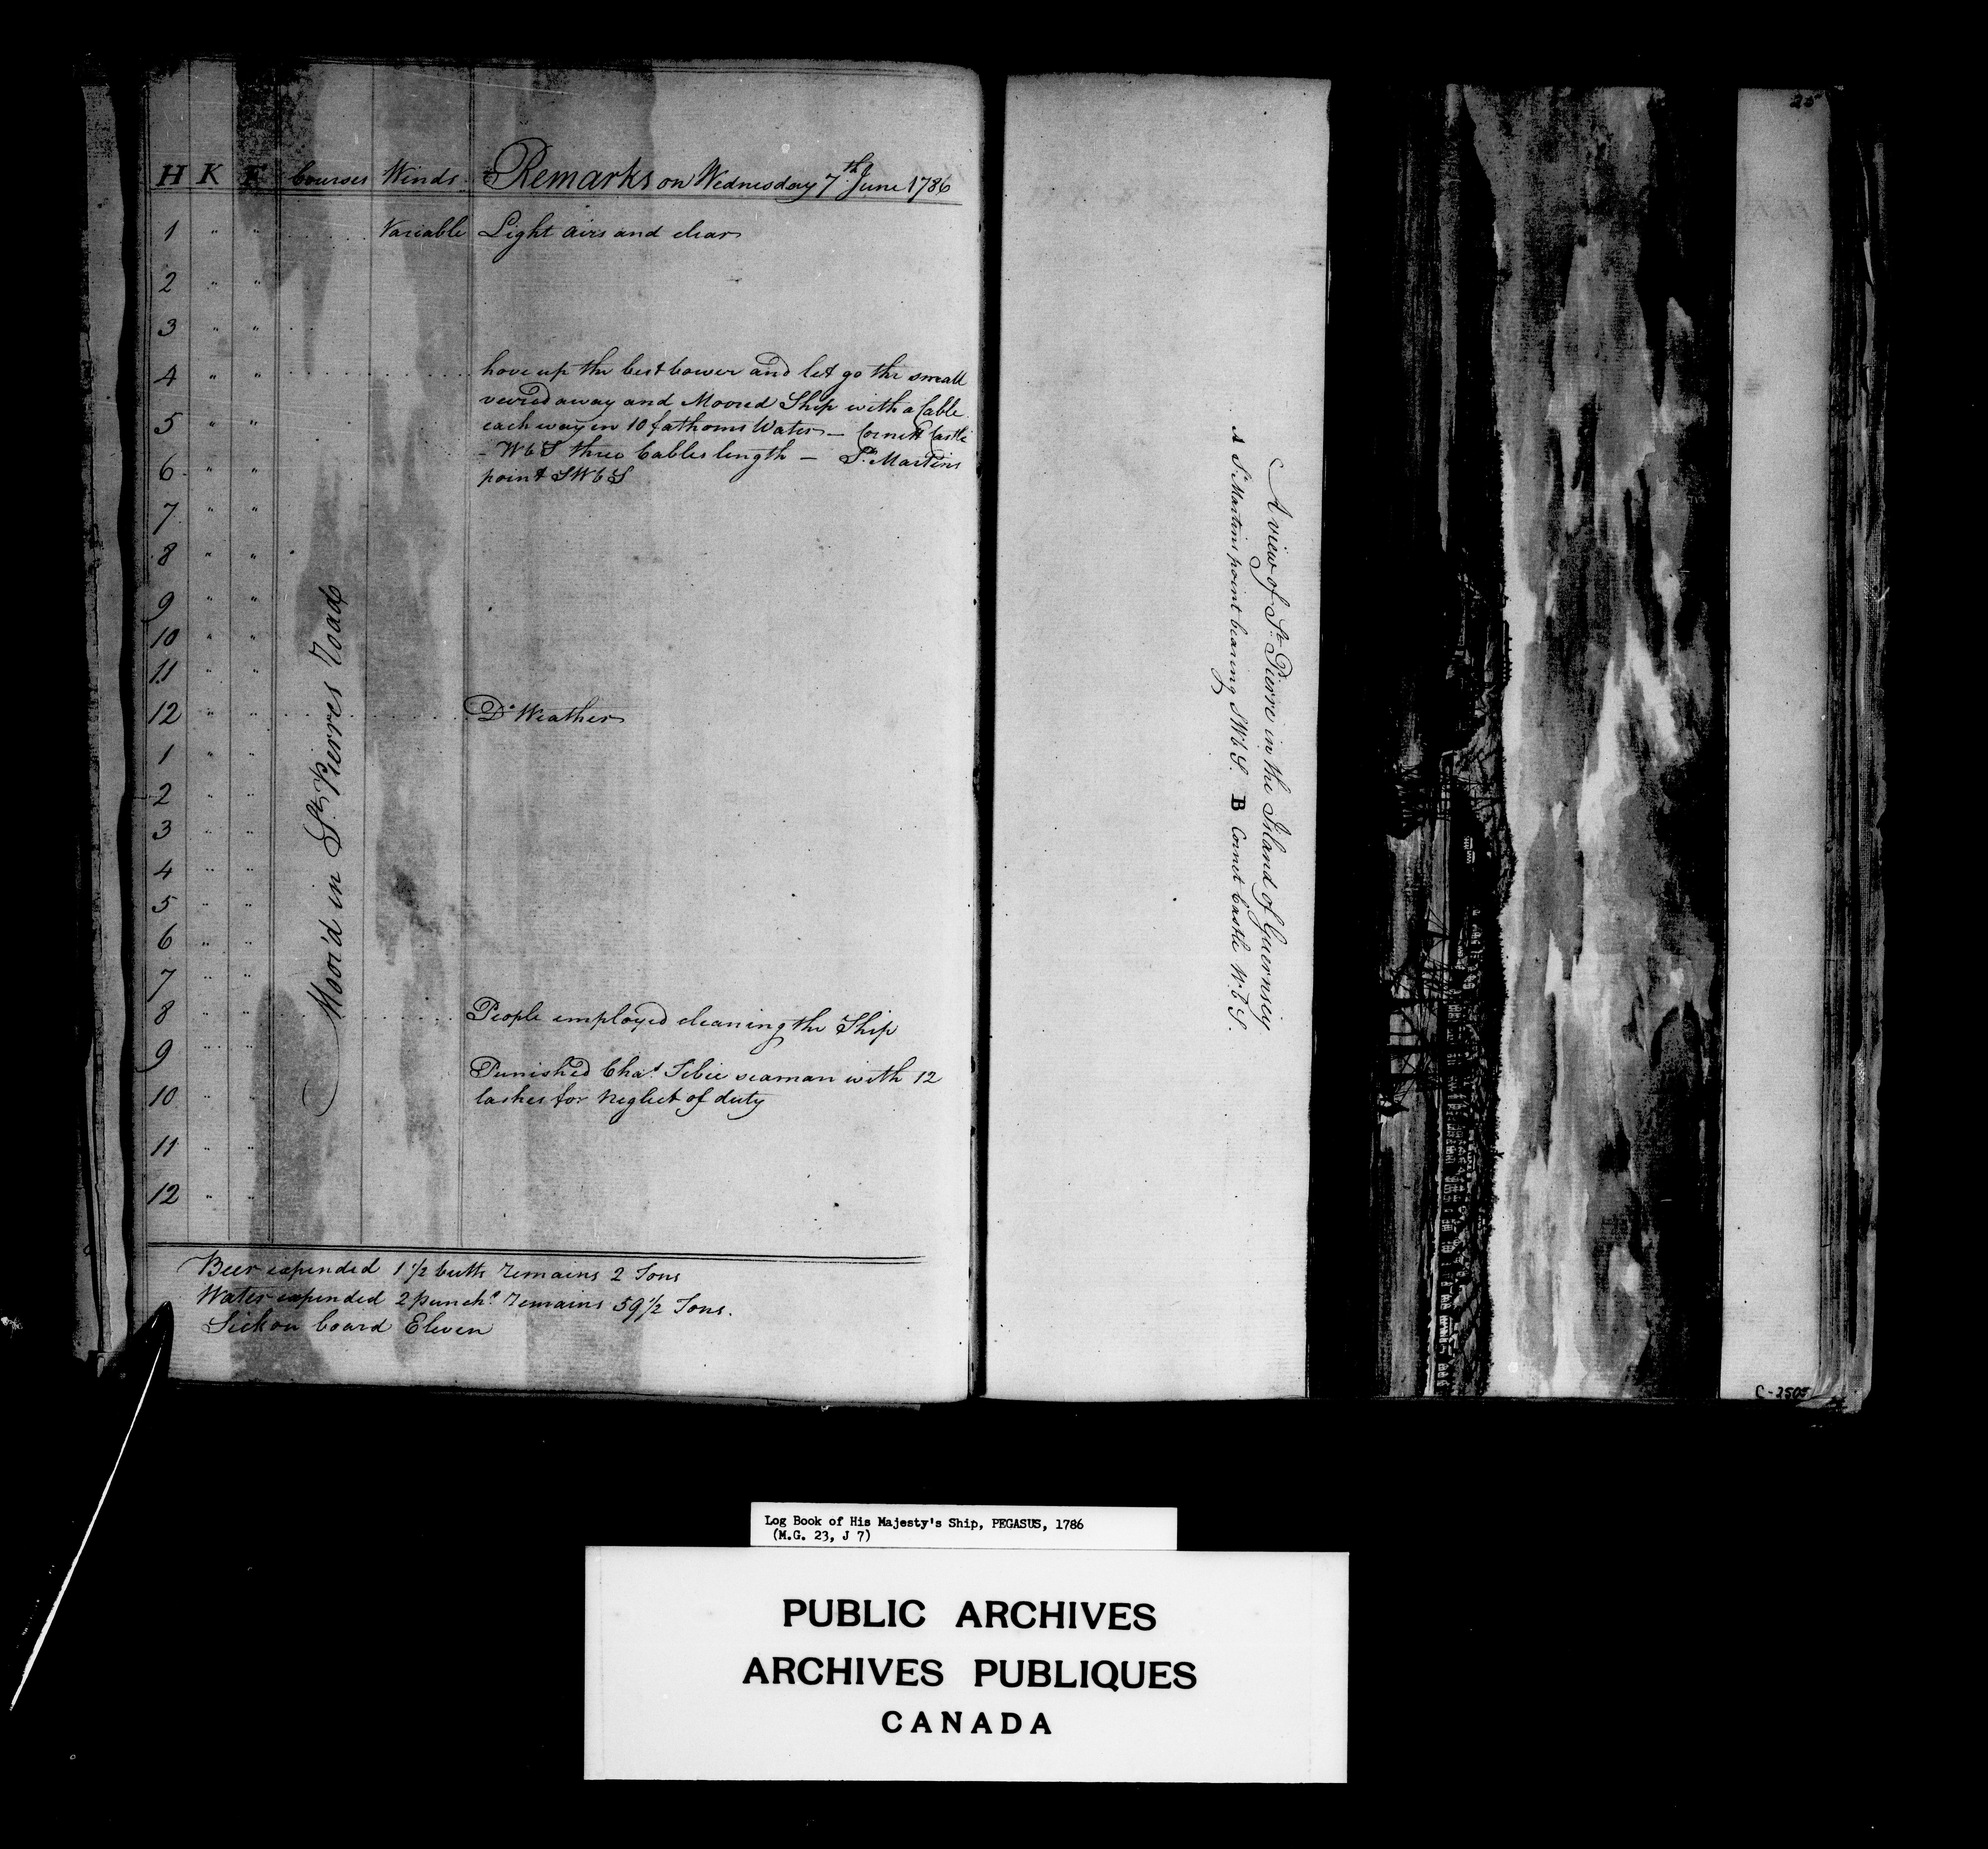 H K F Courses Winds Remarks on Wednesday 7th June 1786
1 " " Variable Light airs and clear
2 " "
3 " "
4 " " hove up the best bower and let go the small
veered away and Moored Ship with a Cable
5 " " each way in 10 fathoms Water – Cornett Castle
– WbS three Cables length – St. Martins
6 " " point SWbS
7 " "
8 " "
9 " "
10 " "
11 " "
12 " " Do Weather
1 " "
2 " "
3 " "
4 " "
5 " "
6 " "
7 " "
8 " " People employed cleaning the Ship
9 " "
Punished Chas. seaman with 12
10 " " lashes for Neglect of duty
11 " "
12 " "
Moor'd in St. Pierres Road
Beer expended 1 1/2 butts remains 2 Tons
Water expended 2 punchs. remains 59 1/2 Tons.
Sick on board Eleven
A view of St. Pierre in the Island of Guernsey
A St. Martins point bearing SWbS. B Cornet Castle WbS.
25
C-2505
Log Book of His Majesty's Ship, PEGASUS, 1786
(M.G. 23, J 7)
PUBLIC ARCHIVES
ARCHIVES PUBLIQUES
CANADA